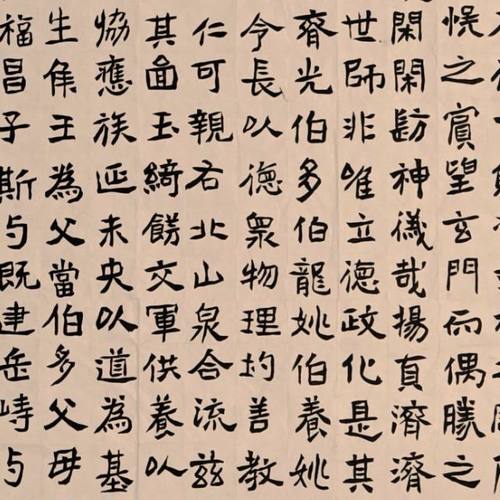 恍之賓望玄門而偶勝之
閑閑神儀哉揚真濟濟
世師非唯立德政化是其
齊光伯多伯龍姚伯養姚
令長以德眾物理均善教
仁可親右北山泉合流茲
其面玉綺餝交軍供養以
恊應族延未央以道為基
生王為父當伯多父母
福昌子斯与既建岳峙与